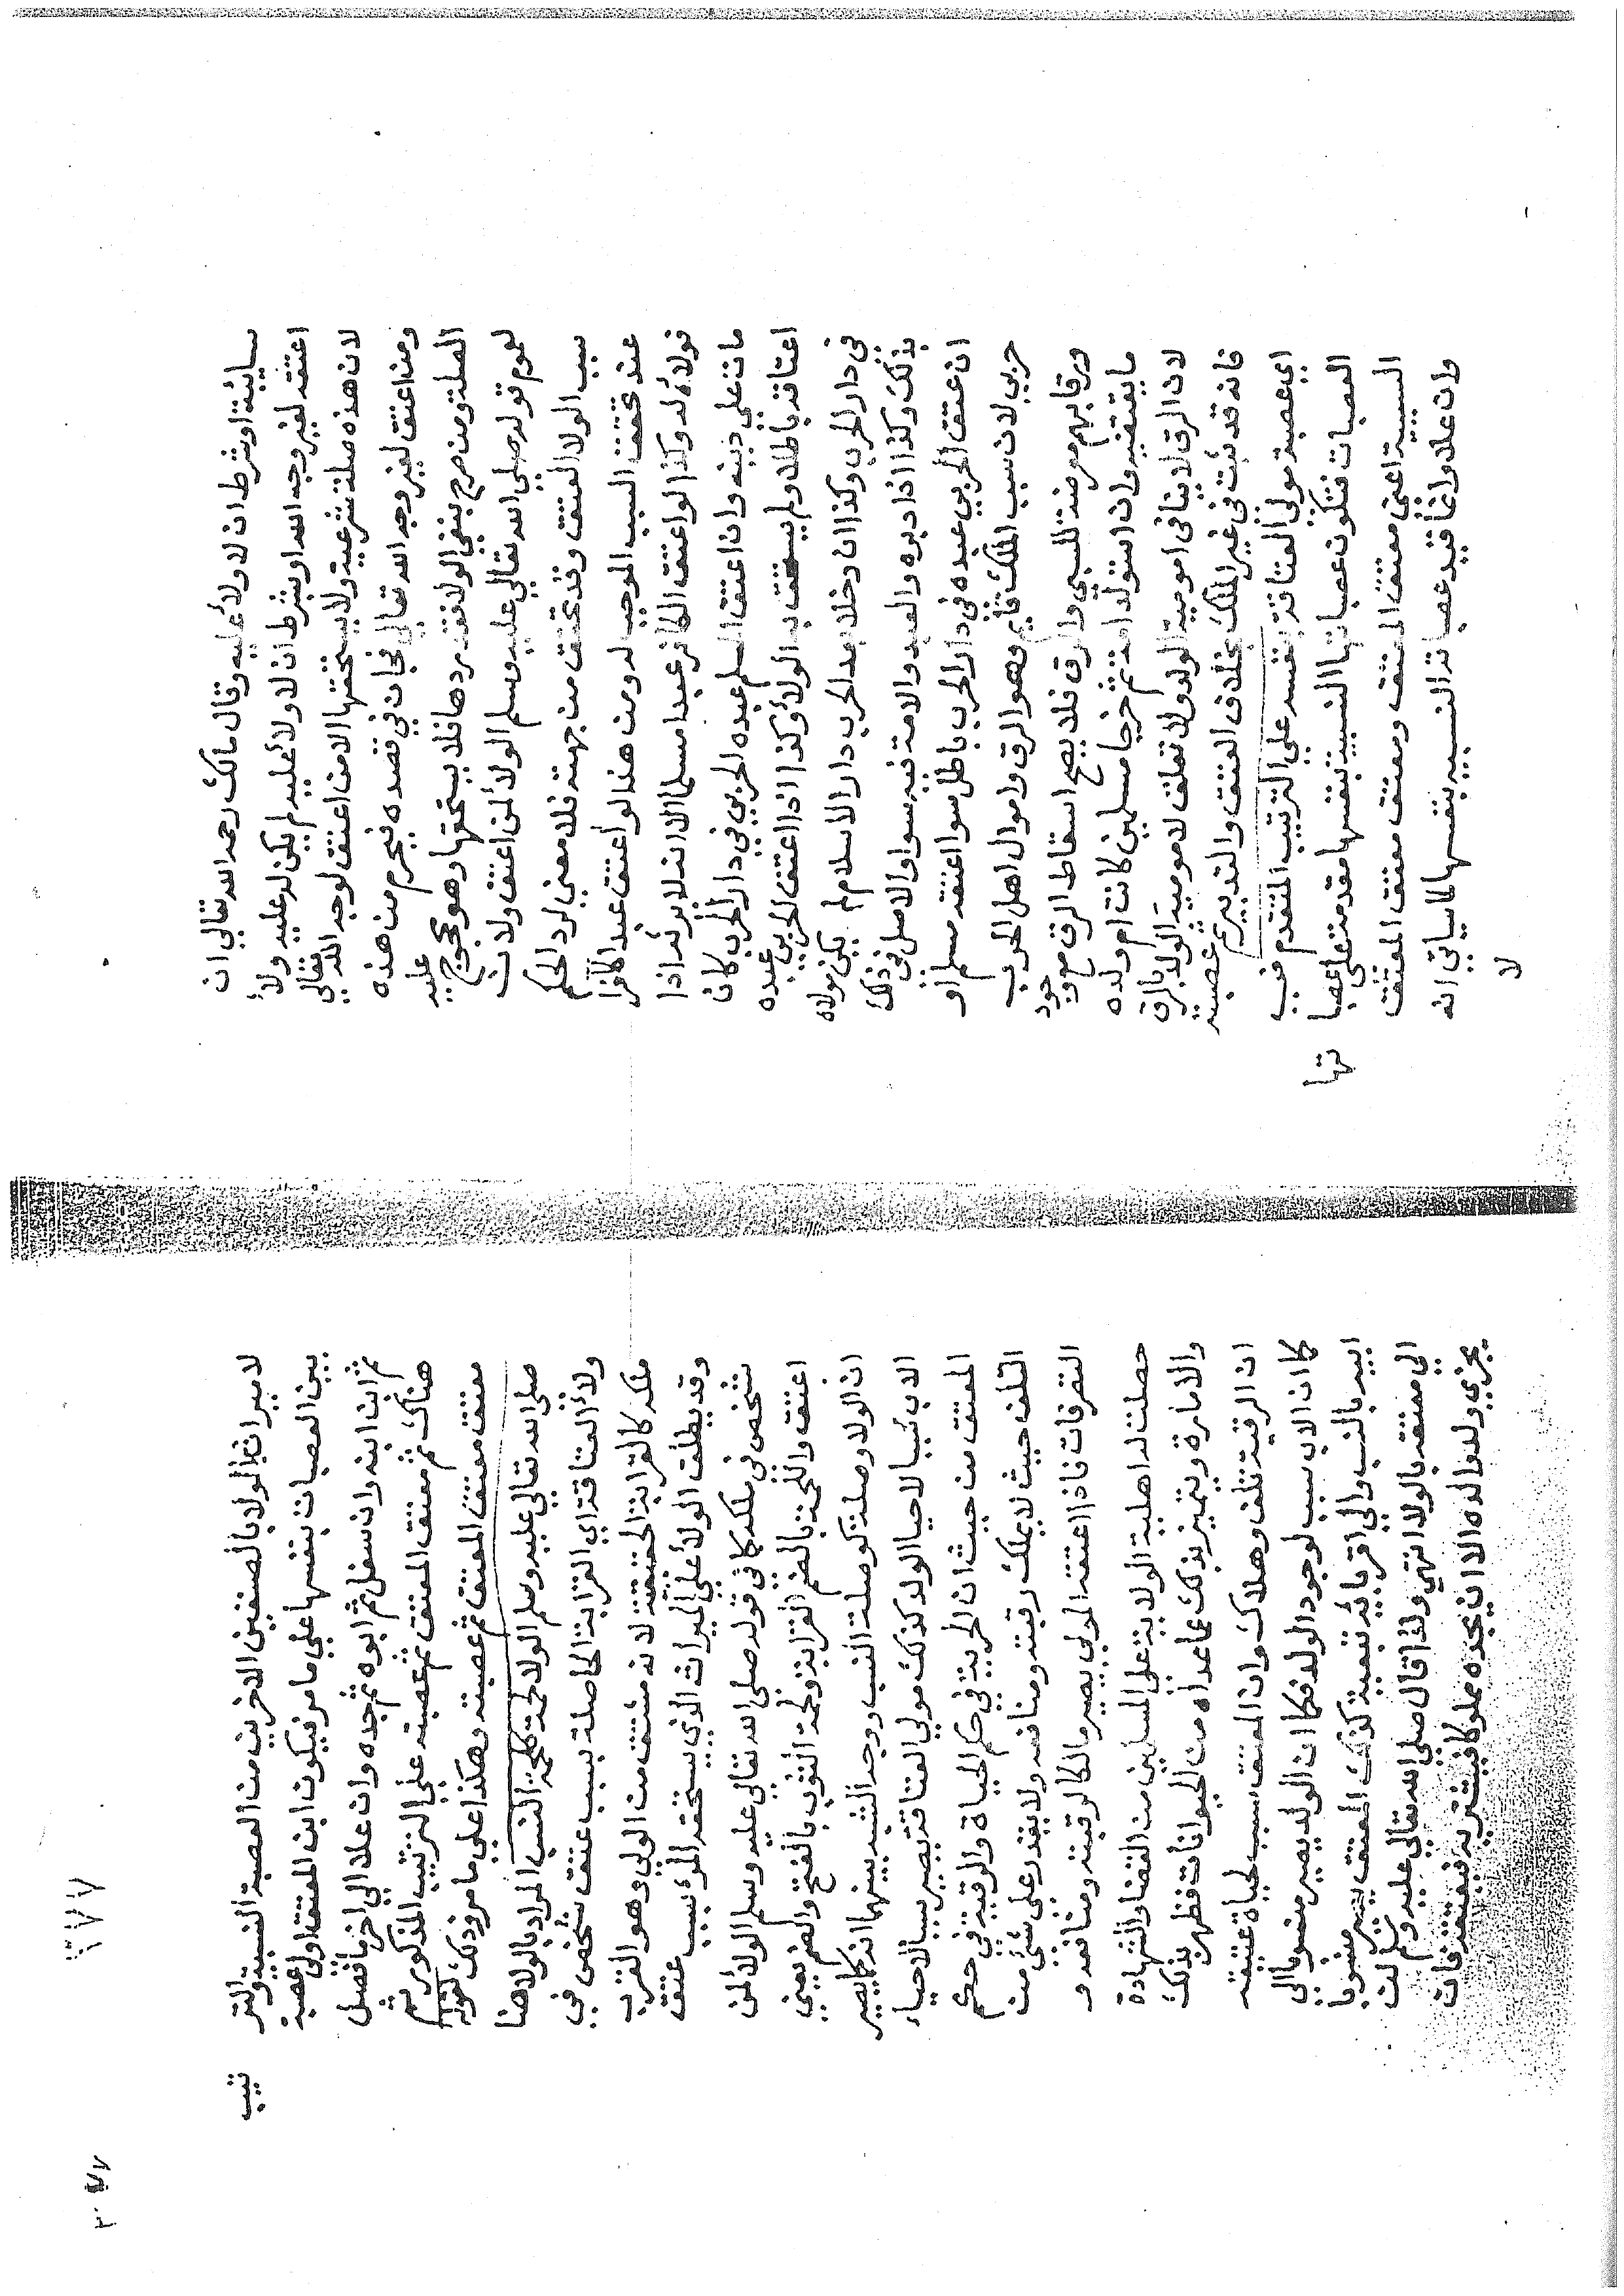 سايبة او شرط ان لا ولاء عليه وقال مالك رحمه الله تعالى ان
اعتقه لغير وجه الله او بشرط ان لا ولاء عليه لم يكن له عليه ولاء
لان هذه صلة شرعية ولا يستحقها الا من اعتق لوجه الله تعالى
ومن اعتق لغير وجه الله تعالى فجان في قصده فيحرم من هذه
الصلة ومن صرح بنفي الولا فقد ردها فلا يستحقها وهو محجوج عليه
لعموم قوله صلى الله تعالى عليه وسلم الولاء لمن اعتق ولان
سبب الولا العتق وقد تحقق من جهته فلا معنى لرد الحكم
عند تحقق السبب الموجب له ومن هذا لو اعتق عبدا كافرا
فولاءه له وكذا لو اعتق الكافر عبدا مسلما الا انه لا يرثه اذا
مات على دينه وان اعتق المسلم عبده الحربي في دار الحرب كان
اعتاقه باطلا ولم يستحق به الولاء وكذا اذا اعتق الحربي عبده
في دار الحرب وكذا ان دخلا بعد الحرب دار الاسلام لم يكن مولاه
بذلك وكذا اذا دبره والعبد والامة فيه سواء والاصل في ذلك
ان عتق الحربي عبده في دار الحرب باطل سوا اعتقه مسلم او
حربي لان سبب الملك قايم وهو الرق واموال اهل الحرب
ورقابهم معرضة للسبي والرق فلا يصح اسقاط الرق مع وجود
ما يقتضيه وان استولد امته ثم خرجا مسلمين كانت ام ولده
لان الرق لا ينافي امومية الولد ولا تعلق لامومية الولد بالرق
فانه قد يثبت في غير الملك بخلاف العتق والتدبير ثم عصبته
اي عصبة مولى العتاقة بنفسه على الترتيب المتقدم في
العصبات فتكون عصباتها النسبية بنفسها مقدمة على عصبا
تها
السببية اعني معتق المعتق ومعتق معتق المعتق
وان علا وانما قيد عصباته النسبية بنفسها لما سياتي انه
لا
لا ميراث بالولا بالصنفين الاخرين من العصبة النسبية والتر
تيب
بين العصبات بنفسها على ما مر فيكون ابن المعتق اولى عصبة
ثم ابن ابنه وان سفل ثم ابوه ثم جده وان علا الى اخر ما فصل
هناك ثم معتق المعتق ثم عصبته على الترتيب المذكور ثم
معتق معتق المعتق ثم عصبته وهكذا على ما مر وذلك لقوله
صلى الله تعالى عليه وسلم الولا لحمة كلحمة النسب المراد بالولا هنا
ولاء العتاقة اي القرابة الحاصلة بسبب عتق شخص في
ملكه كالقرابة الحقيقة لانه مشتق من الولي وهو القرب
وقد يطلق الولاء على الميراث الذي يستحقه المرء بسبب عتق
شخص في ملكه كما في قوله صلى الله تعالى عليه وسلم الولاء لمن
اعتق واللحمة بالضم القرابة ولحمة الثوب بالفتح والضم يعني
ان الولا وصلة كوصلة النسب ووجه الشبه بينهما انه كما يصير
الاب سببا لاحيا الولد كذلك مولى العتاقة يصير سببا لاحياء
المعتق من حيث ان الحرية في حكم الحياة والرقية في حكم
التلف حيث لا يملك رقبته ومنافعه ولا يقدر على شئ من
التصرفات فاذا اعتقه المولى يصير مالكا لرقبته ومنافعه و
حصلت له اهلية الولاية على المسلمين من القضا والشهادة
والامارة ويتميز بذلك عما عداه من الحيوانات فظهر بذلك
ان الرقية تلف وهلاك وان المعتق سبب لحياة عتيقه
كما ان الاب سبب لوجود الولد فكما ان الولد يصير منسوبا الى
ابيه بالنسب والى اقربائه بتبعيته كذلك المعتق يصير منسوبا
الى معتقه بالولا انتهى ولذا قال صلى الله تعالى عليه وسلم لن
يجزي ولد والده الا ان يجده مملوكا فيشتريه فيعتقه فان